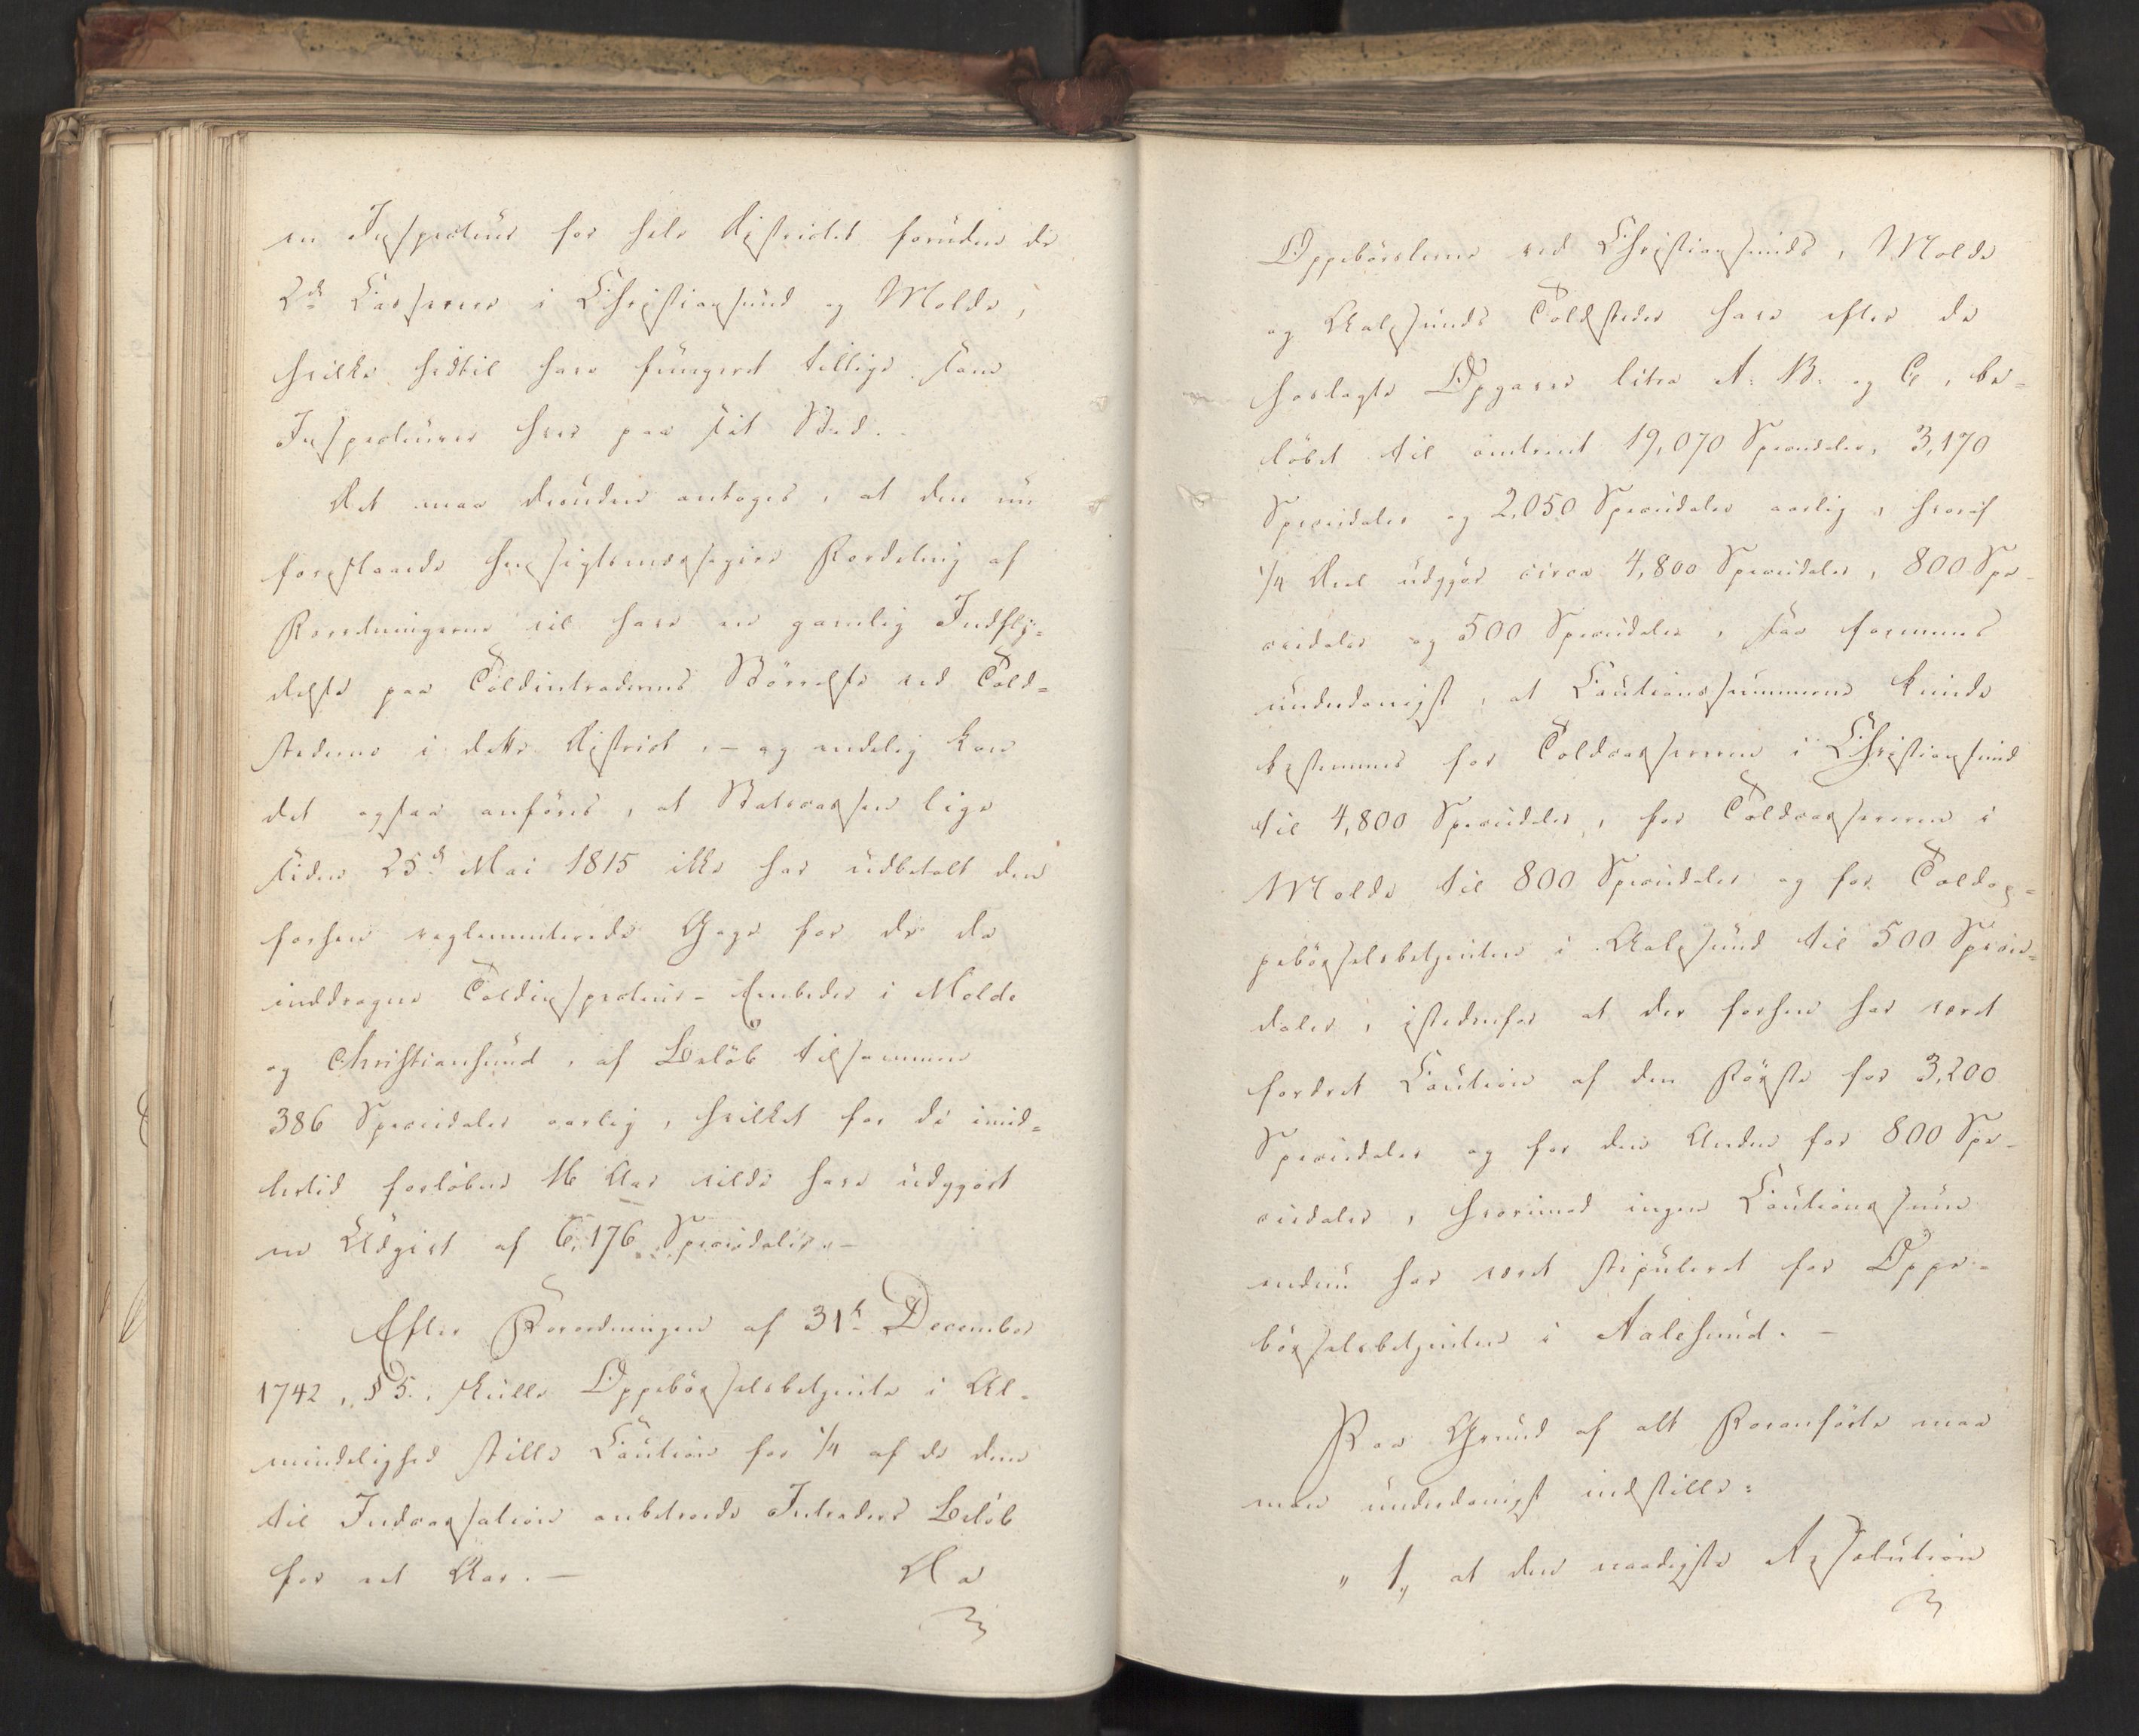 en Inspecteur for hele Districtet foruden de
2de Casserere i Christiansund og Molde,
hvilke hidtil have fungeret tillige som
Inspecteurer hver paa sit Sted.
Det maa desuden antages, at den nu
forestaaende hensigtsmæssigere Fordeling af
Forretningerne vil have en gavnlig Indfly=
delse paa Toldintradernes Størrelse ved Told=
stederne i dette District, – og endelig kan
det ogsaa anføres, at Statscassen lige
siden 25de Mai 1815 ikke har udbetalt den
forhen reglementerede Gage for de da
inddragne Toldinspecteur-Embeder i Molde
og Christiansund, af Beløb tilsammen
386 Speciedaler aarlig, hvilket for de imid=
lertid forløbne 16 Aar vilde have udgjort
en Udgivt af 6,176 Speciedaler. –
Efter Forordningen af 31te December
1742, § 5., skulle Oppebørselsbetjente i Al=
mindelighed stille Caution for 1/4 af de dem
til Indcassation anbetroede Intraders Beløb
for eet Aar. –
Da
Oppebørslerne ved Christiansunds, Molde
og Aalesunds Toldsteder have efter de
hoslagte Opgaver litra A. B. og C, be=
løbet til omtrent 19,070 Speciedaler, 3,170
Speciedaler og 2,050 Speciedaler aarlig, hvoraf
1/4 Deel udgjør circa 4,800 Speciedaler, 800 Spe-
ciedaler og 500 Speciedaler, saa formenes
underdanigst, at Cautionssummerne kunde
bestemmes for Toldcassereren i Christiansund
til 4,800 Speciedaler, for Toldcassereren i
Molde til 800 Speciedaler og for Toldop=
pebørselsbetjenten i Aalesund til 500 Specie=
daler, istedenfor at der forhen har været
fordret Caution af den Første for 3,200
Speciedaler og for den Anden for 800 Spe-
ciedaler, hvorimod ingen Cautionssum
endnu har været stipuleret for Oppe=
børselsbetjenten i Aalesund. –
Paa Grund af alt Foranførte maa
man underdanigst indstille:
" 1, at den naadigste Resolution